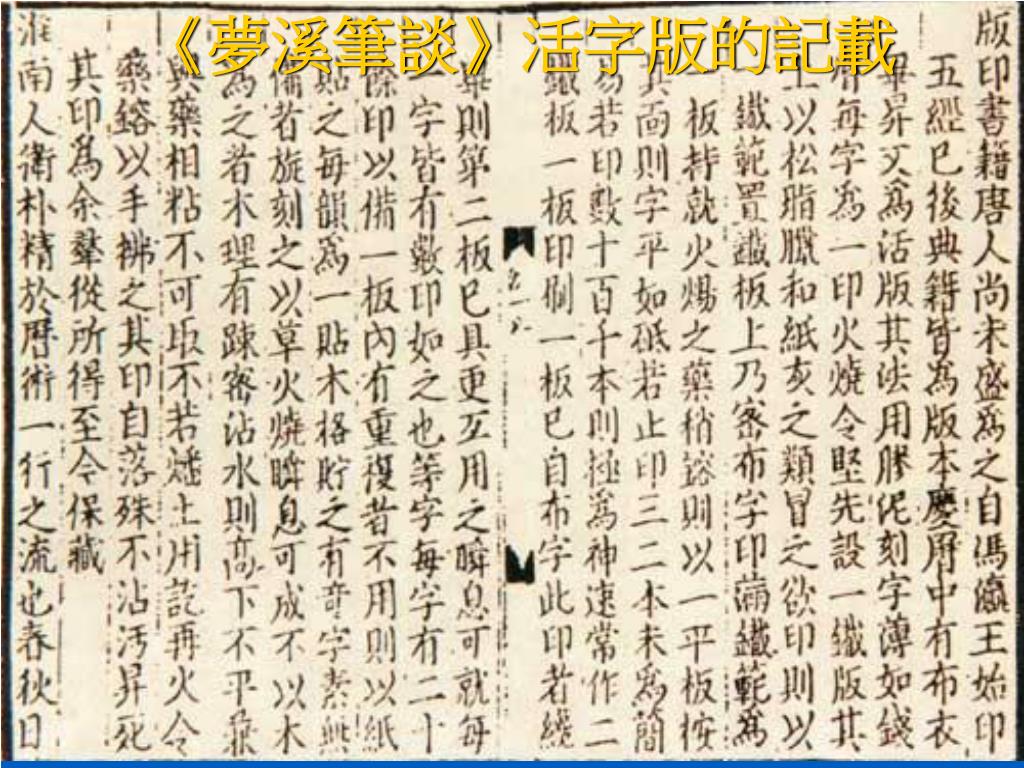 《夢溪筆談》活字版的記載
版印書籍唐人尚未盛爲之自馮瀛王始印
五經已後典籍皆爲版本慶曆中有布衣
畢昇又爲活版其法用膠泥刻字薄如錢
唇每字爲一印火燒令堅先設一鐵版其
上以松脂臘和紙灰之類冒之欲印則以
一鐵範置鐵板上乃密布字印滿鐵範爲
一板持就火煬之藥稍鎔則以一平板按
其面則字平如砥若止印三二本未爲簡
易若印數十百千本則極爲神速常作二
鐵板一板印刷一板已自布字此印者纔
畢則第二板已具更互用之瞬息可就每
一字皆有數印如之也等字每字有二十
餘印以備一板內有重複者不用則以紙
貼之每韻爲一貼木格貯之有奇字素無
備者旋刻之以草火燒瞬息可成不以木
爲之者木理有疎密沾水則高下不平兼
與藥相粘不可取不若燔土用訖再火令
藥鎔以手拂之其印自落殊不沾汚昇死
其印爲余羣從所得至今保藏
淮南人衛朴精於曆術一行之流也春秋日